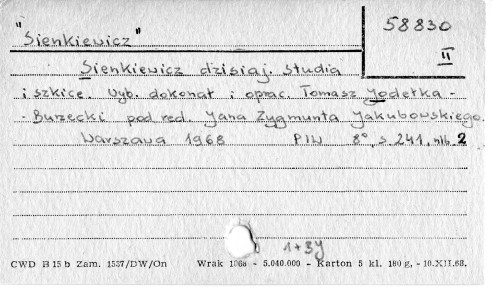 "Sienkiewicz"
58830
II
Sienkiewicz dzisiaj. Studia
i szkice. Wyb. dokonał i oprac. Tomasz Jodełka-
-Burzecki pod red. Jana Zygmunta Jakubowskiego.
Warszawa 1968 PIW 8°, s. 241, nlb 2
1+3y
CWD B 15 b Zam. 1557/DW/On Wrak 106a - 5.040.000 - Karton 5 kl. 180 g. - 10.XII.68.